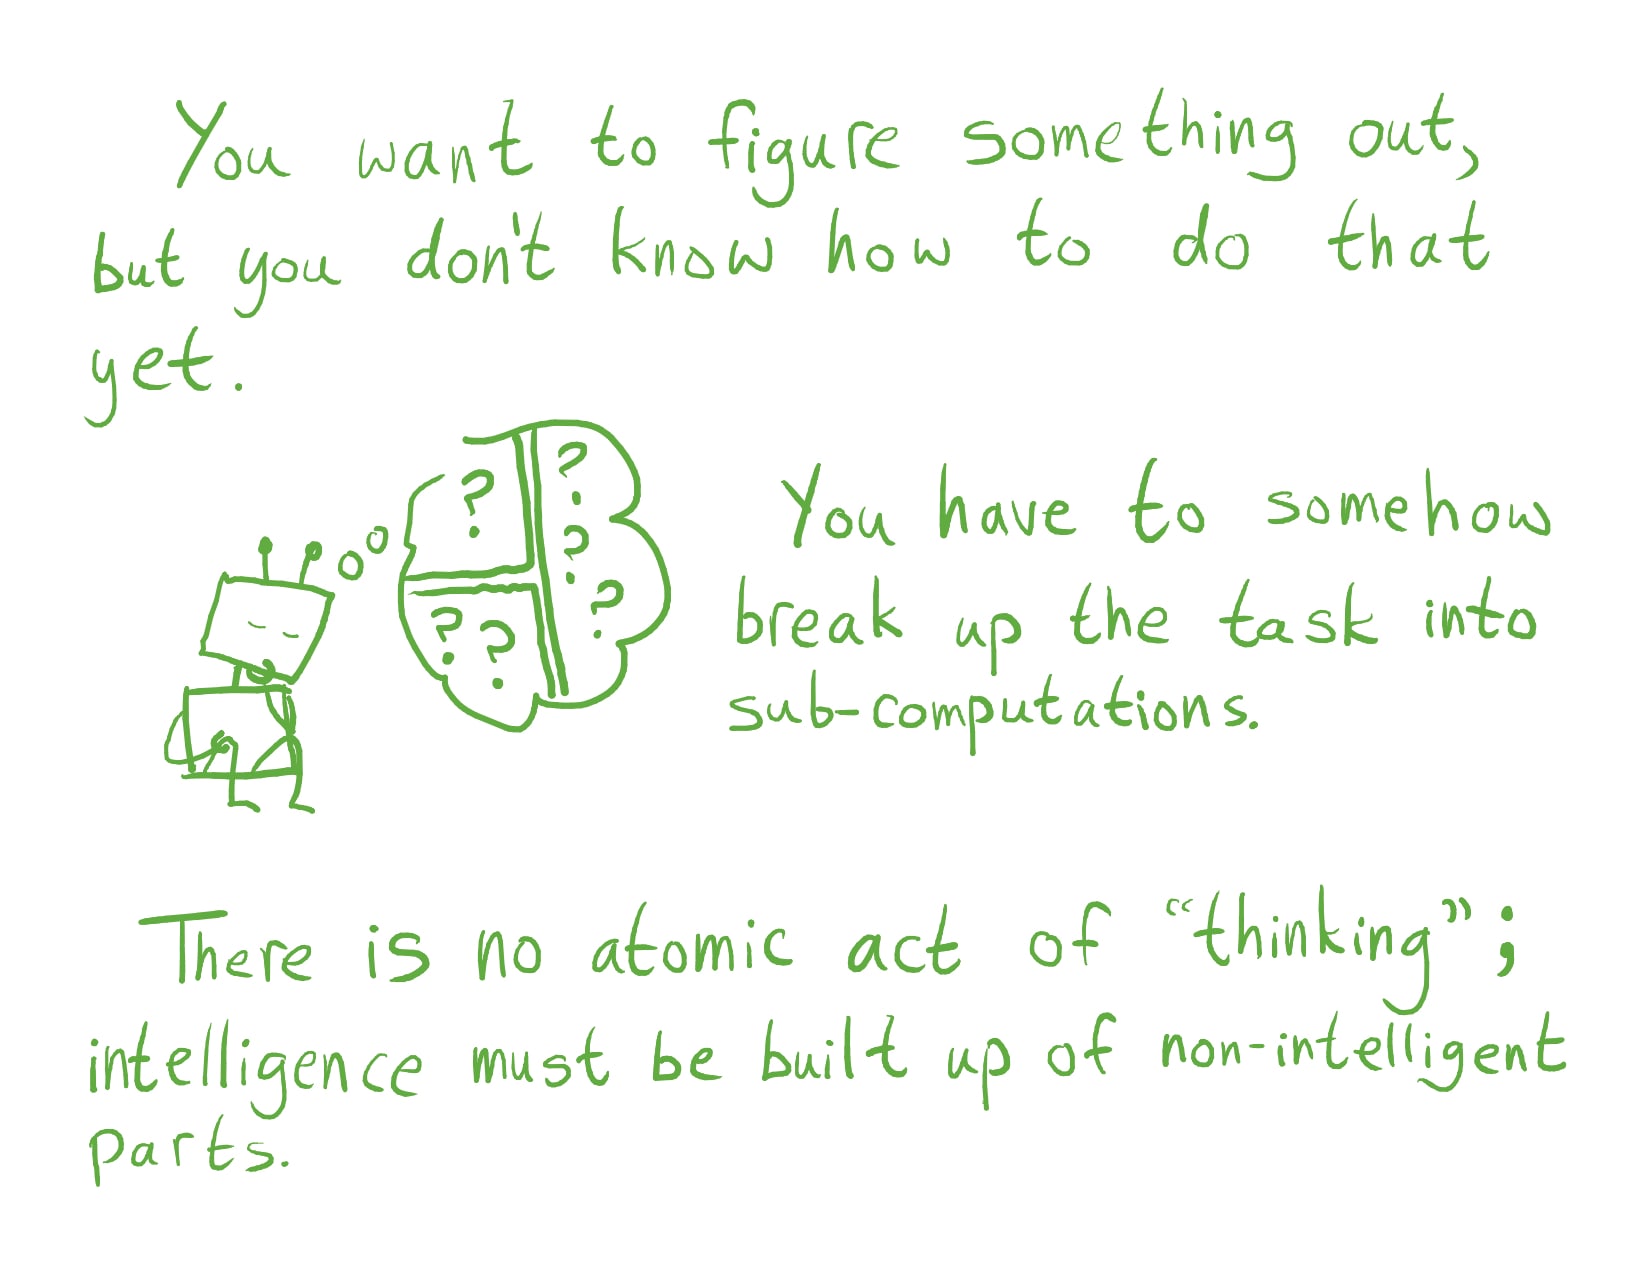 You want to figure something out,
but you don't know how to do that
yet.
? ?
? ?
? ? ?
You have to somehow
break up the task into
sub-computations.
There is no atomic act of “thinking”;
intelligence must be built up of non-intelligent
parts.